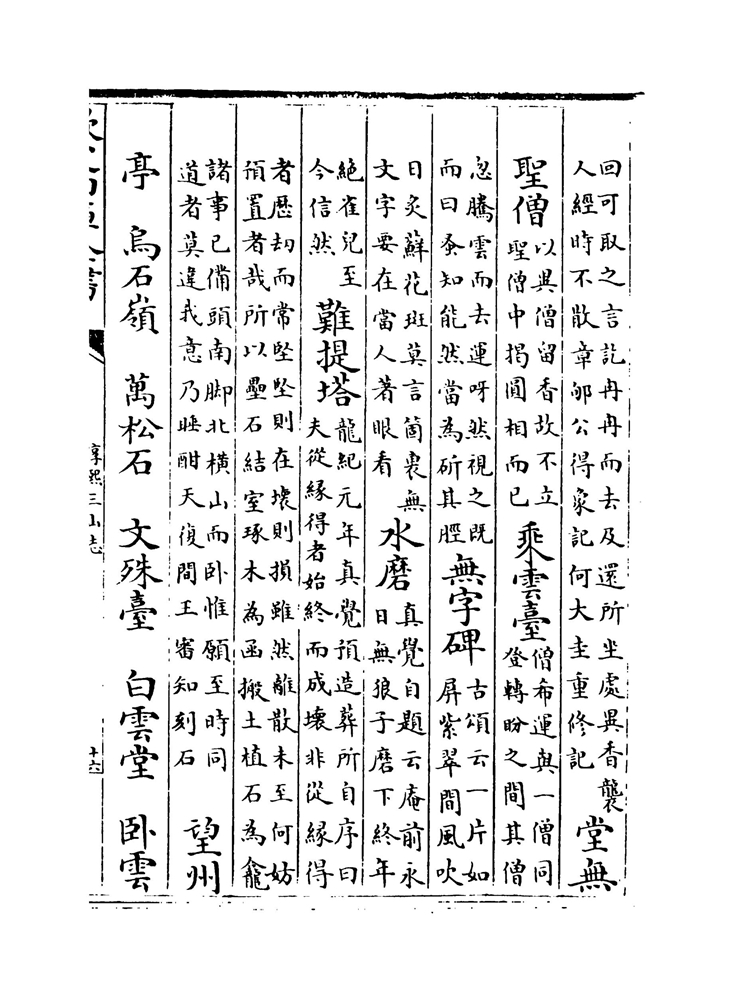 回可取之言訖冉冉而去及還所坐處異香襲
人經時不散章郇公得象記何大圭重修記
堂無
聖僧
以異僧留香故不立
聖僧中揭圓相而已
乘雲臺
僧希運與一僧同
登轉盼之間其僧
忽騰雲而去運呀然視之既
而曰蚤知能然當為斫其脛
無字碑
古頌云一片如
屏紫翠間風吹
日炙蘇花斑莫言箇裏無
文字要在當人著眼看
水磨
真覺自題云庵前永
日無狼子磨下終年
絶雀兒至
今信然
難提塔
龍紀元年真覺預造葬所自序曰
夫從緣得者始終而成壞非從緣得
者歴劫而常堅堅則在壞則損雖然離散未至何妨
預置者哉所以壘石結室琢木為函搬土植石為龕
諸事已備頭南脚北橫山而卧惟願至時同
道者莫違我意乃睡酣天復間王審知刻石
望州
亭　烏石嶺　萬松石　文殊臺　白雲堂　卧雲
淳熙三山志
十六